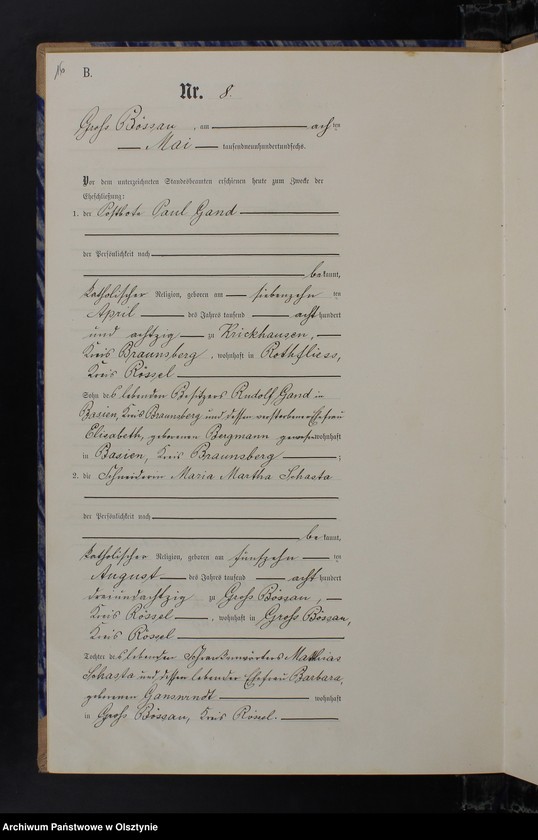 B.
Nr. 8.
Gross Bössau, am acht ten
Mai tausendneunhundertundsechs.
Vor dem unterzeichneten Standesbeamten erschienen heute zum Zwecke der
Eheschließung:
1. der Postbote Paul Gand
der Persönlichkeit nach
be kannt,
katholischer Religion, geboren am siebenzehn ten
April des Jahres tausend acht hundert
und achtzig zu Krickhausen,
Kreis Braunsberg, wohnhaft in Rothfliess,
Kreis Rössel
Sohn des lebenden Besitzers Rudolf Gand in
Basien, Kreis Braunsberg und dessen verstorbenen Ehefrau
Elisabeth, geborenen Bergmann gewesen wohnhaft
in Basien, Kreis Braunsberg ;
2. die Schneiderin Maria Martha Schasta
der Persönlichkeit nach
be kannt,
katholischer Religion, geboren am fünfzehn ten
August des Jahres tausend acht hundert
dreiundachtzig zu Gross Bössau,
Kreis Rössel, wohnhaft in Gross Bössau,
Kreis Rössel
Tochter des lebenden Schrankenwärters Matthias
Schasta und dessen lebenden Ehefrau Barbara,
geborenen wohnhaft
in Gross Bössau, Kreis Rössel.
Archiwum Państwowe w Olsztynie